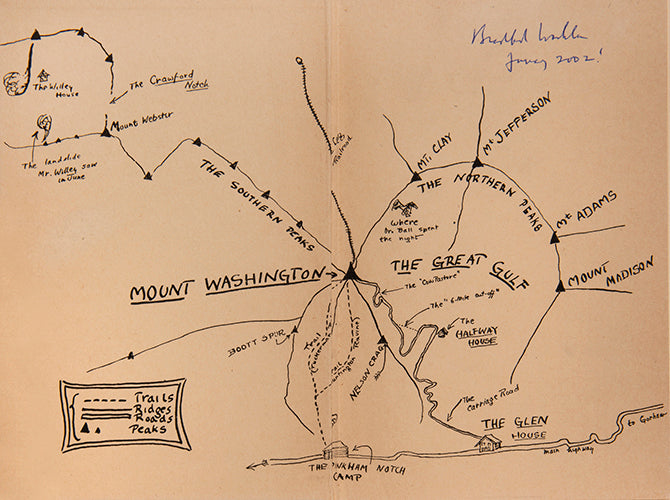 Bradford Washburn
January 2002!
The Willey
House
The Crawford
Notch
Mount Webster
The landslide
Mr. Willey saw
in June
THE SOUTHERN PEAKS
Cog
Railroad
MT. CLAY
Mt JEFFERSON
THE NORTHERN PEAKS
Mt ADAMS
MOUNT MADISON
where
Dr. Ball spent
the night
MOUNT WASHINGTON
THE GREAT GULF
The "Cow Pasture"
The "6-Mile cut-off"
The
HALFWAY
HOUSE
BOOTT SPUR
Trail
Tuckerman
Trail
Huntington Ravine
NELSON CRAG
The
Carriage Road
THE GLEN
HOUSE
to Gorham
main highway
THE PINKHAM NOTCH
CAMP
Trails
Ridges
Roads
Peaks